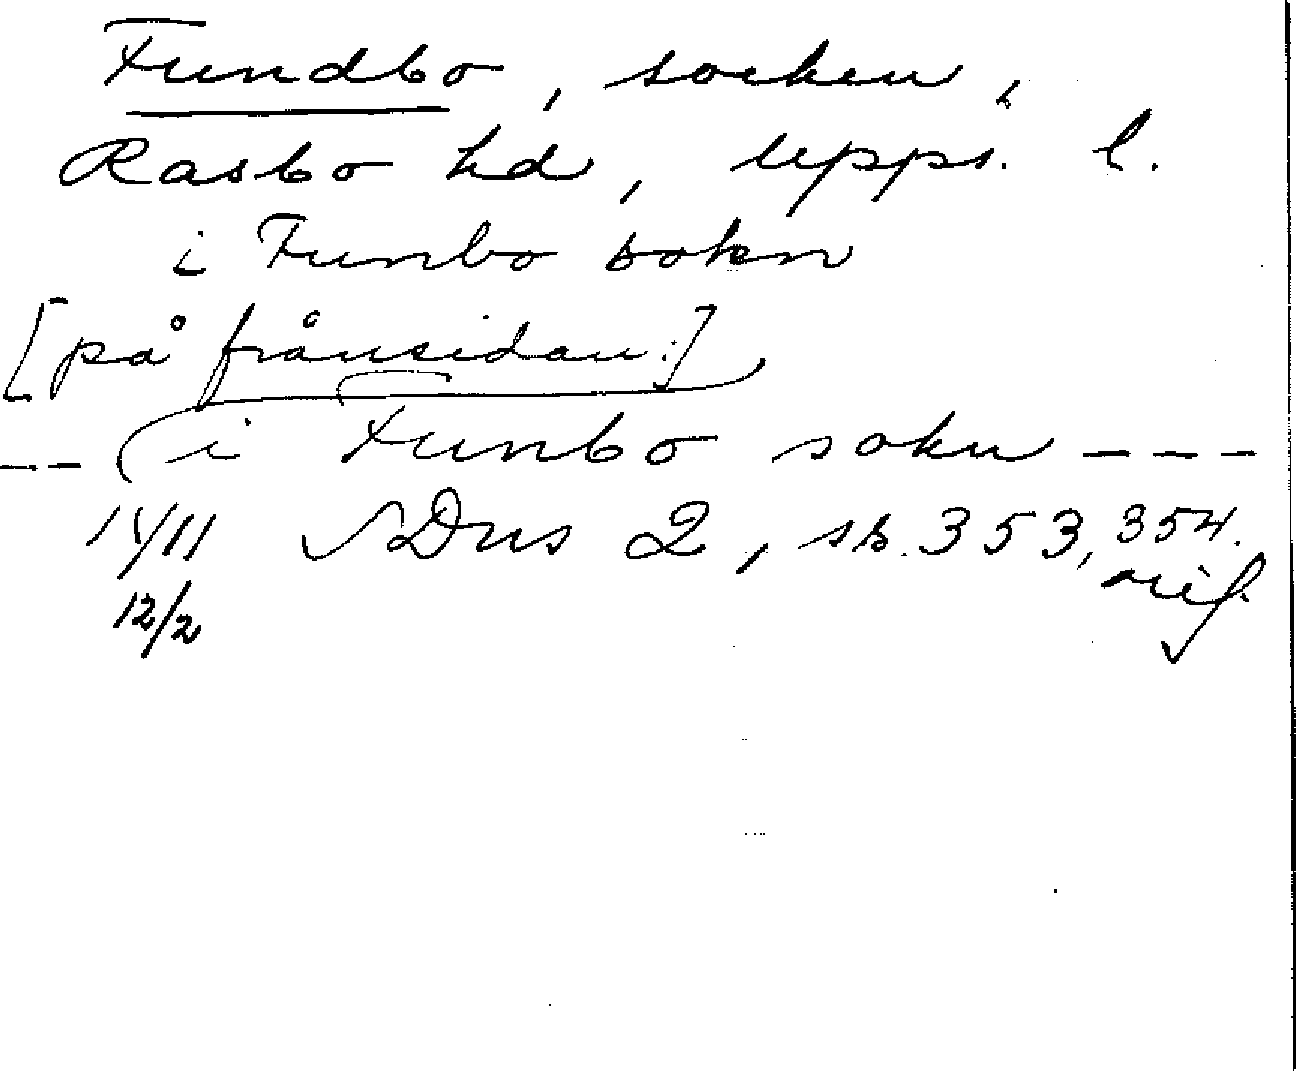 Fundbo, socken,
Rasbo hd, Upps. l.
i Funbo sokn
[på frånsidan:]
-- i Funbo sokn ---
1411 SDns 2, s. 353, 354.
12/2